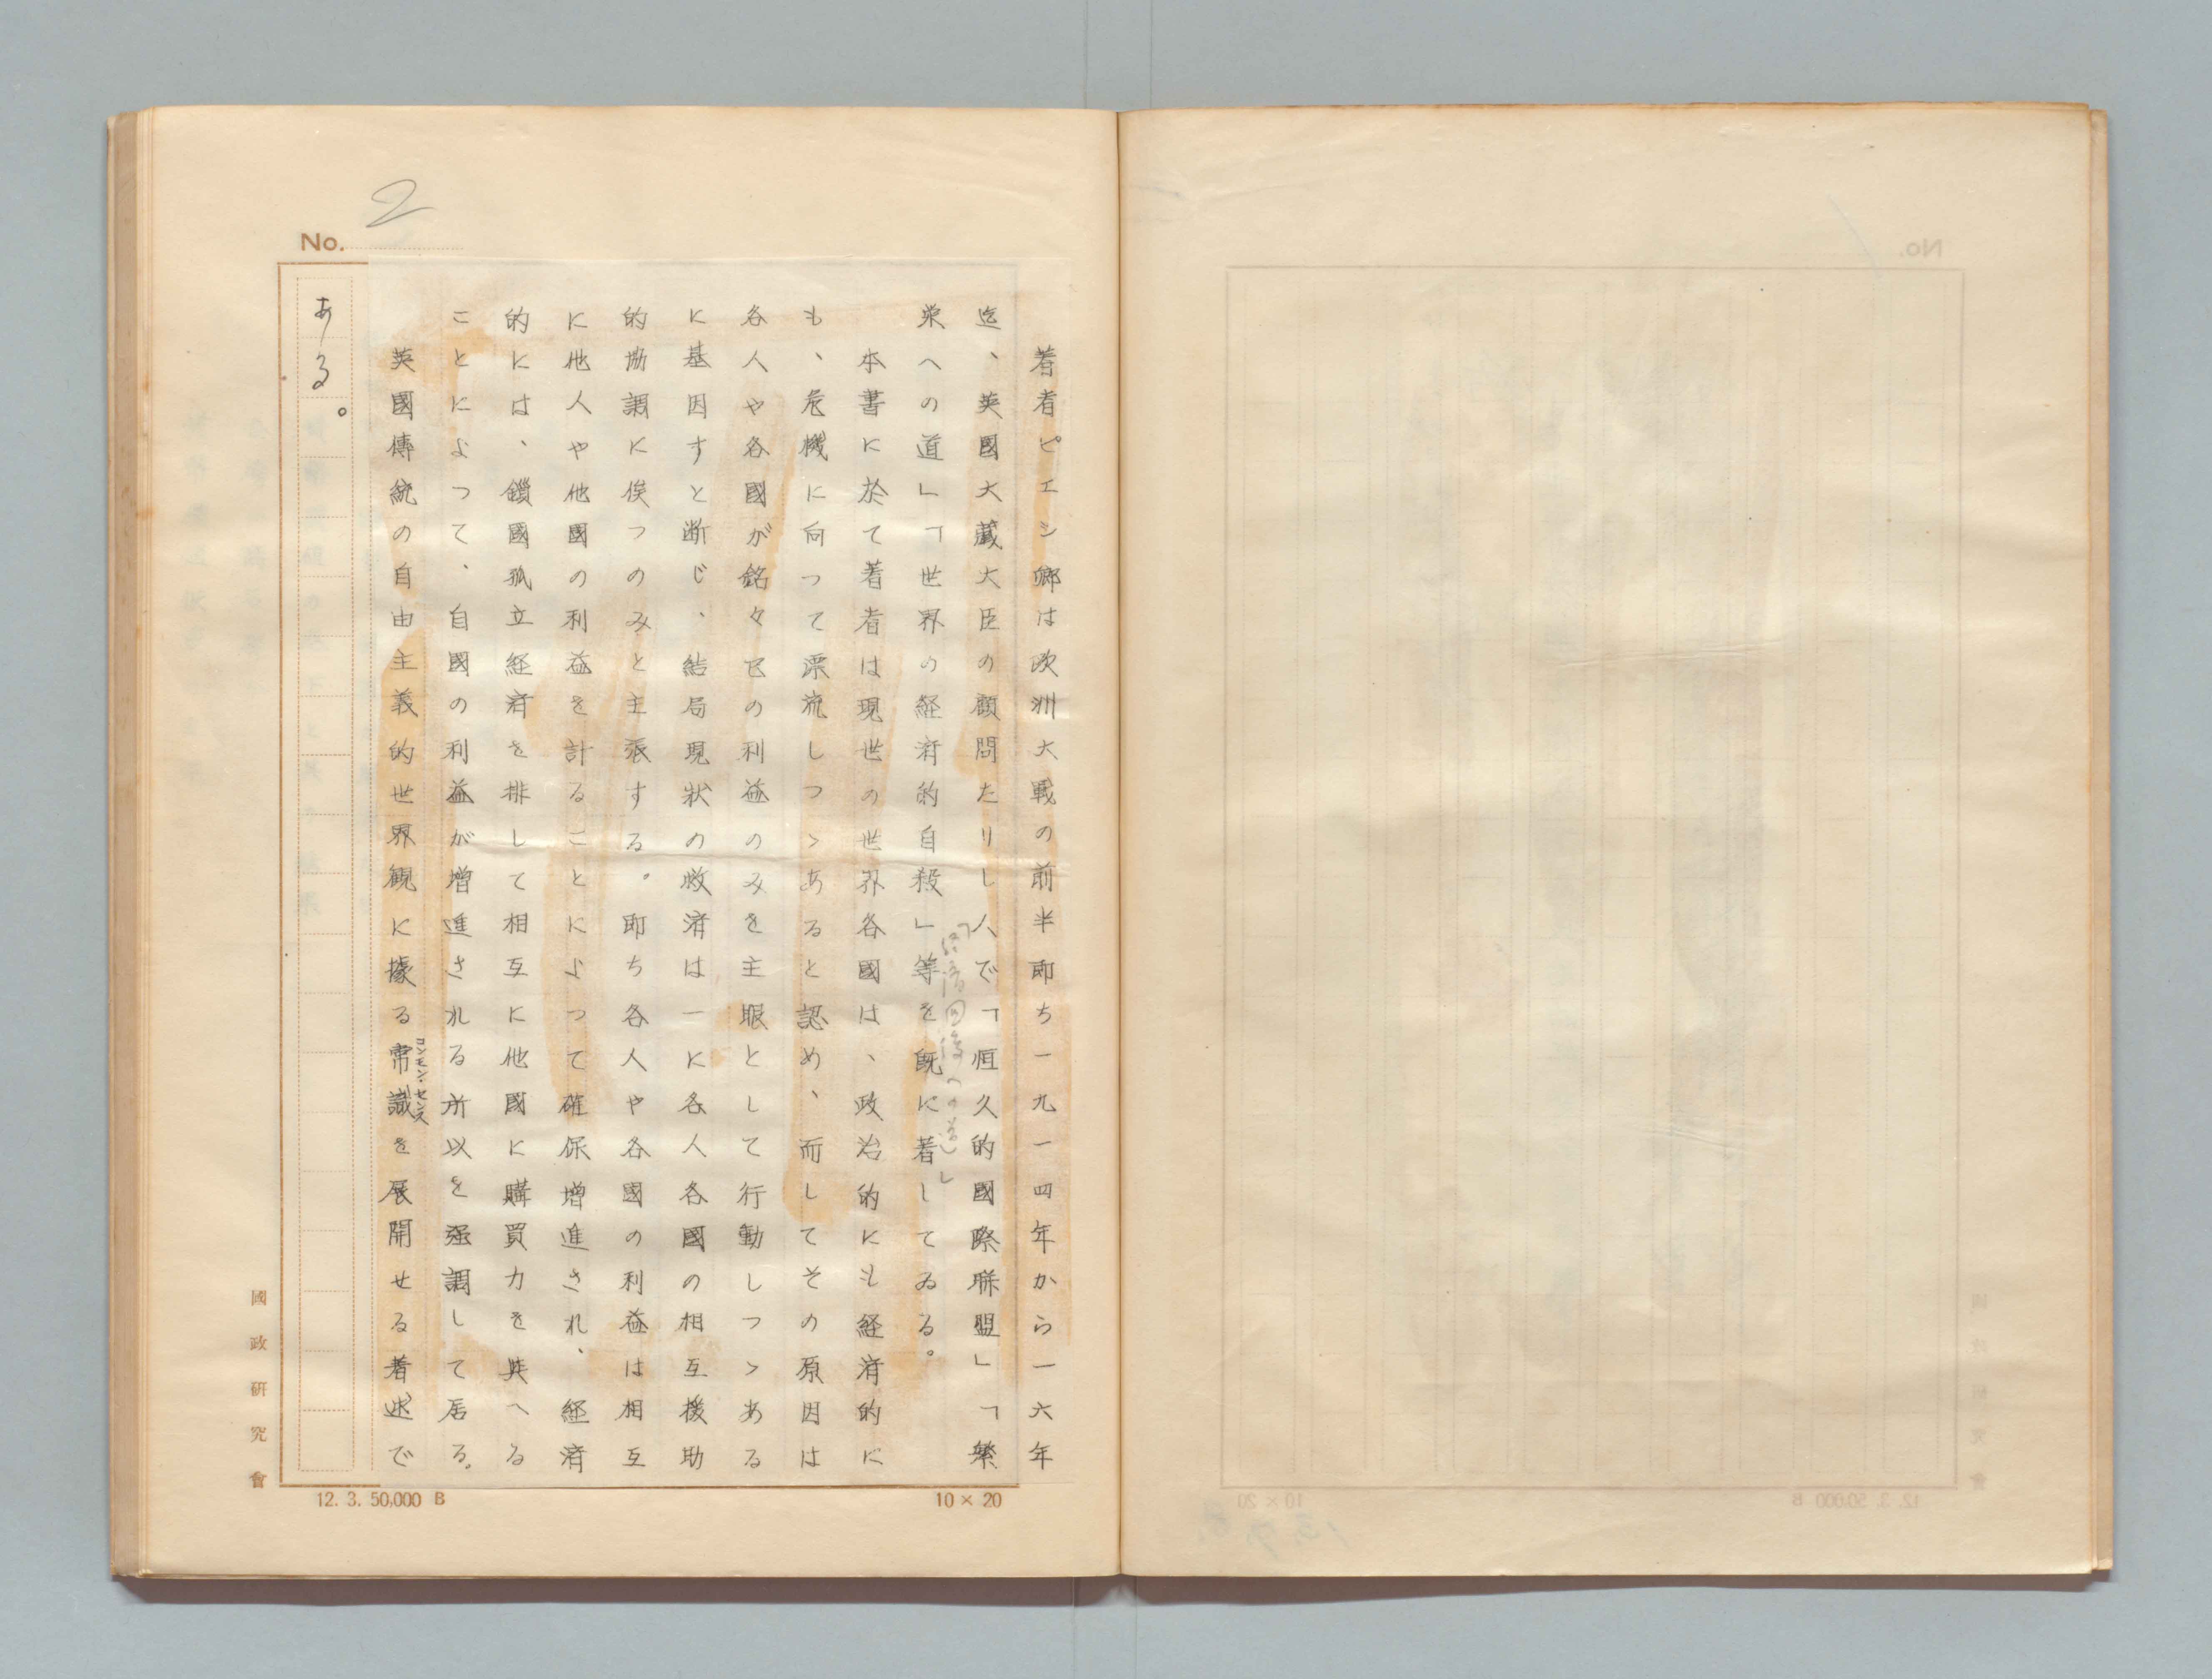 2
No.
著者ピエシ郷は欧洲大戦の前半即ち一九一四年から一六年
迄、英國大藏大臣の顧問たりし人で「恒久的國際聯盟」「繁
栄への道」「世界の経済的自殺」等を既に著してゐる。
「経済回復への道」
本書に於て著者は現世の世界各國は、政治的にも経済的に
も、危機に向って漂流しつゝあると認め、而してその原因は
各人や各國が銘々己の利益のみを主眼として行動しつゝある
に基因すと断じ、結局現状の救済は一に各人各國の相互援助
的協調に俟つのみと主張する。即ち各人や各國の利益は相互
に他人や他國の利益を計ることによつて確保増進され、経済
的には、鎖國孤立経済を排して相互に他國に購買力を与へる
ことによつて、自國の利益が増進される所以を强調して居る。
英國傳統の自由主義的世界観に據る常識を展開せる著述で
コンモン・センス
ある。
國政研究會
12. 3. 50,000 B
10 × 20